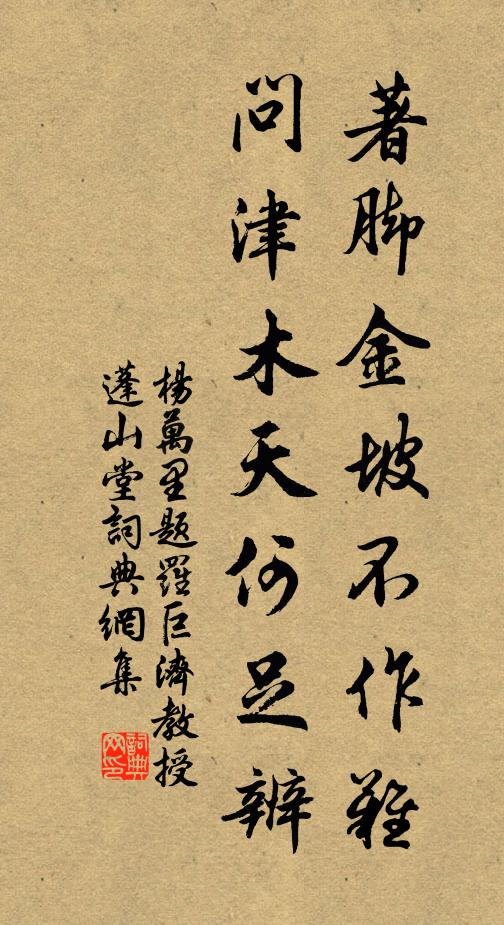 著脚金坡不作難
問津木天何足辨
楊萬里題羅巨濟教授
蓬山堂詞典網集
詞典
网印